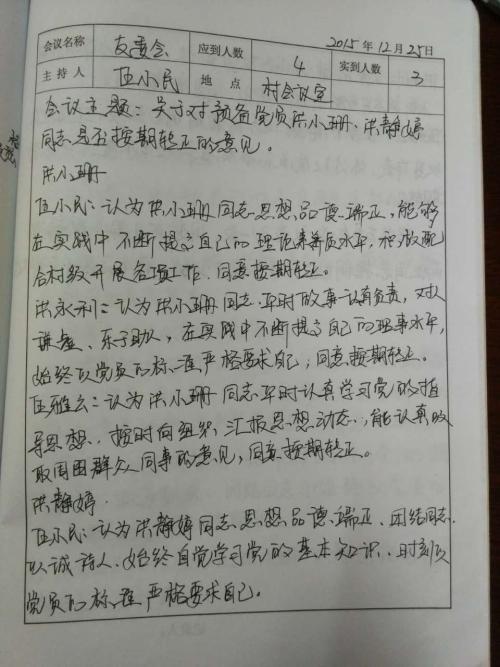 2015年12月25日
会议名称 支委会 应到人数 4 实到人数 3
主持人 伍小民 地点 村会议室
会议主题：关于对预备党员洪小珊、洪静婷
同志是否按期转正的意见。
洪小珊
伍小民：认为洪小珊同志思想品德端正，能够
在实践中不断提高自己的理论素养水平，积极配
合村级开展各项工作，同意按期转正。
洪永利：认为洪小珊同志平时做事认真负责，对人
谦虚、乐于助人，在实践中不断提高自己的理事水平，
始终以党员的标准严格要求自己，同意按期转正。
伍雅云：认为洪小珊同志平时认真学习党的指
导思想，按时向组织汇报思想动态，能认真听
取周围群众同事的意见，同意按期转正。
洪静婷
伍小民：认为洪静婷同志思想品德端正、团结同志、
以诚待人、始终自觉学习党的基本知识、时刻以
党员的标准严格要求自己。